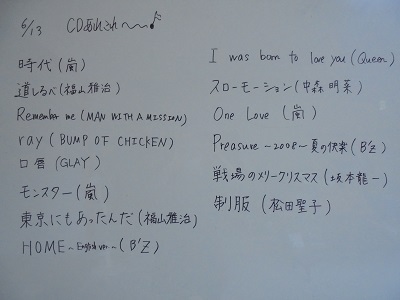 6/13 CDあれこれ〜〜♪
時代(嵐)
道しるべ(福山雅治)
Remember me (MAN WITH A MISSION)
ray (BUMP OF CHICKEN)
口唇 (GLAY)
モンスター(嵐)
東京にもあったんだ(福山雅治)
HOME〜English ver〜(B'Z)
I was born to love you (Queen)
スローモーション(中森明菜)
One Love (嵐)
Preasure〜2008〜夏の快楽(B'z)
戦場のメリークリスマス(坂本龍一)
制服(松田聖子)